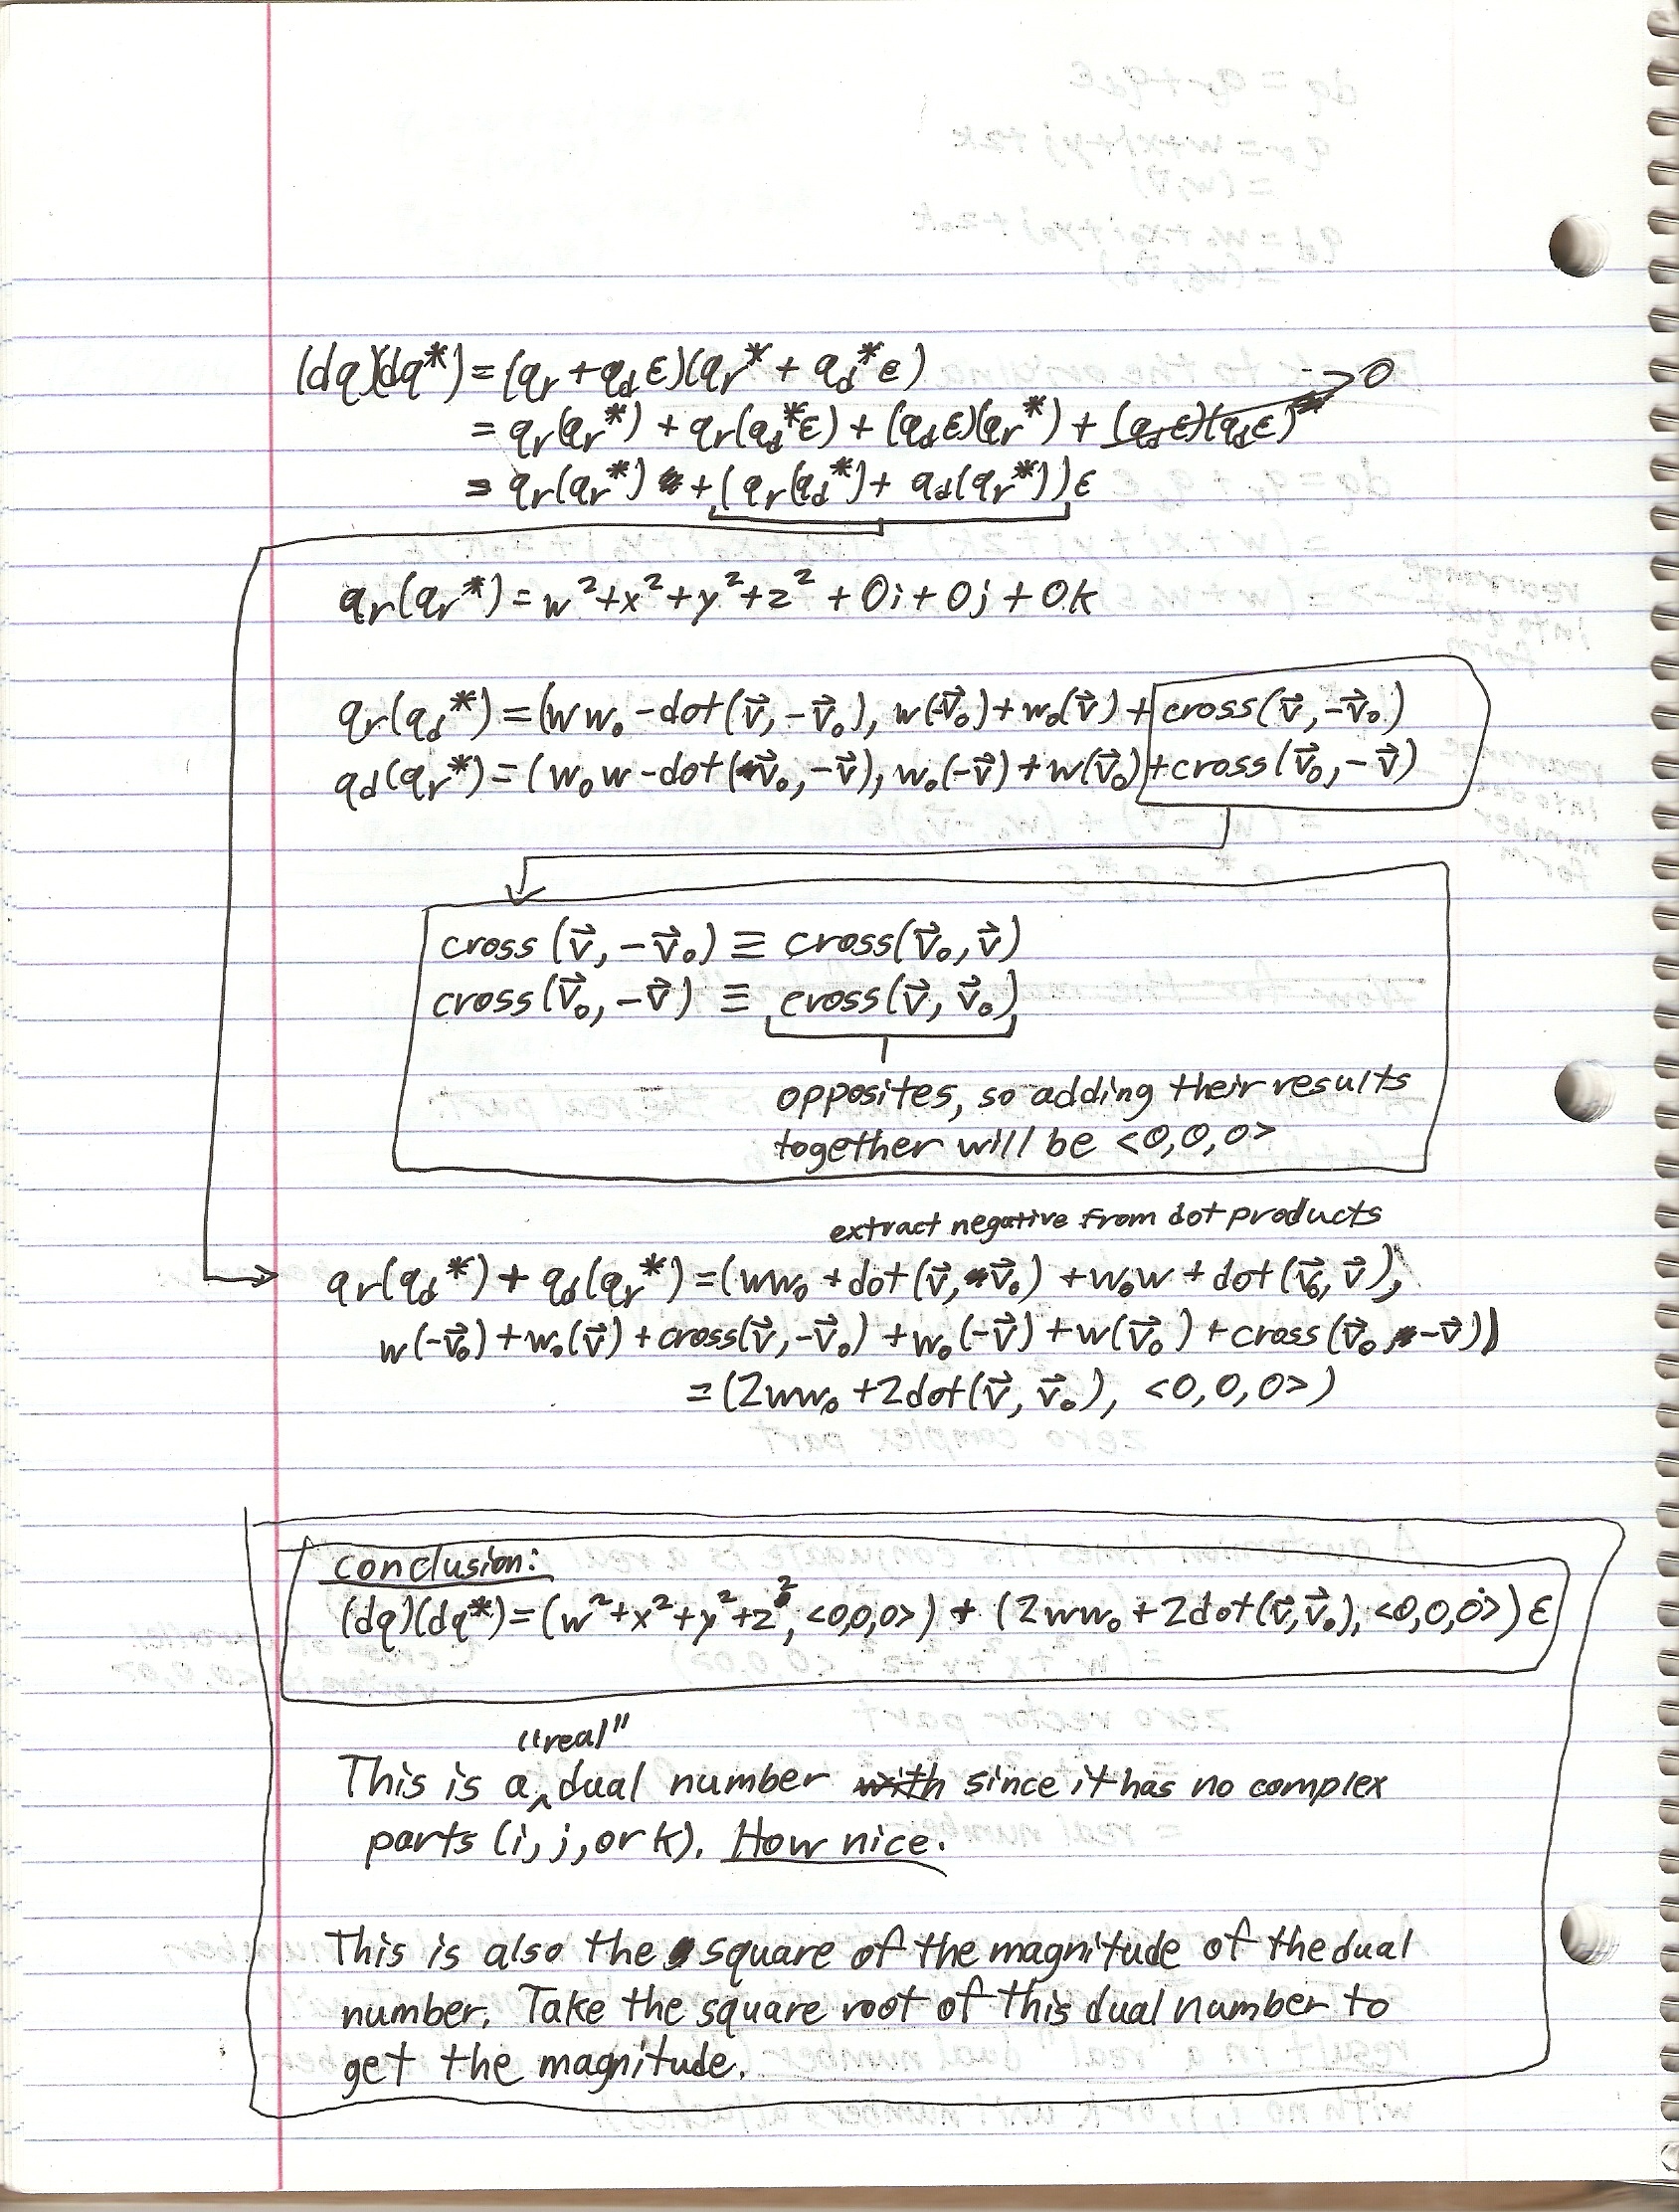 (dq)(dq*) = (qr + qd ε)(qr* + qd* ε)
= qr(qr*) + qr(qd* ε) + (qd ε)(qr*) + (qd ε)(qd ε)* → 0
= qr(qr*) + (qr(qd*) + qd(qr*)) ε
qr(qr*) = w² + x² + y² + z² + 0i + 0j + 0k
qr(qd*) = (ww₀ - dot(v⃗, -v⃗₀), w(-v⃗₀) + w₀(v⃗) + cross(v⃗, -v⃗₀)
qd(qr*) = (w₀w - dot(v⃗₀, -v⃗), w₀(-v⃗) + w(v⃗₀) + cross(v⃗₀, -v⃗)
cross(v⃗, -v⃗₀) ≡ cross(v⃗₀, v⃗)
cross(v⃗₀, -v⃗) ≡ cross(v⃗, v⃗₀)
opposites, so adding their results
together will be <0,0,0>
extract negative from dot products
qr(qd*) + qd(qr*) = (ww₀ + dot(v⃗, v⃗₀) + w₀w + dot(v⃗₀, v⃗),
w(-v⃗₀) + w₀(v⃗) + cross(v⃗, -v⃗₀) + w₀(-v⃗) + w(v⃗₀) + cross(v⃗₀, -v⃗))
= (2ww₀ + 2dot(v⃗, v⃗₀), <0,0,0>)
conclusion:
(dq)(dq*) = (w² + x² + y² + z², <0,0,0>) + (2ww₀ + 2dot(v⃗, v⃗₀), <0,0,0>) ε
This is a "real" dual number with since it has no complex
parts (i, j, or k). How nice.
This is also the square of the magnitude of the dual
number. Take the square root of this dual number to
get the magnitude.